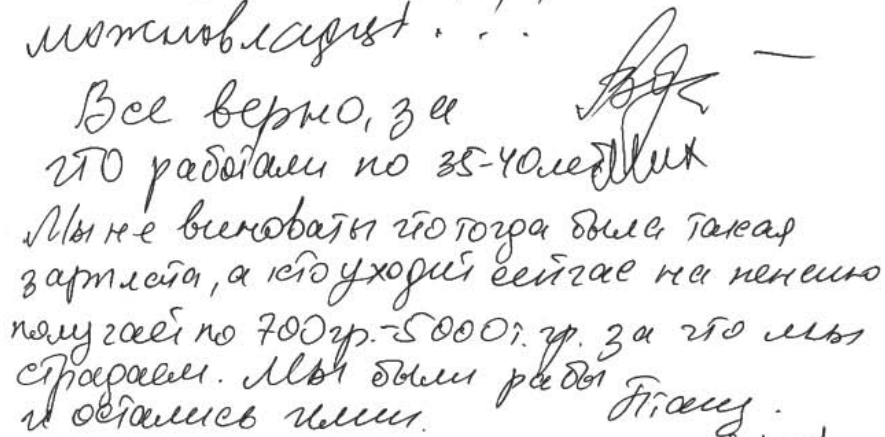 можновладці . . .
Все верно, за
что работали по 35-40 лет
Мы не виноваты что тогда была такая
зарплата, а кто уходит сейчас на пенсию
получает по 700гр.-5000т.гр. за что мы
страдаем. Мы были рабы
и остались ими.